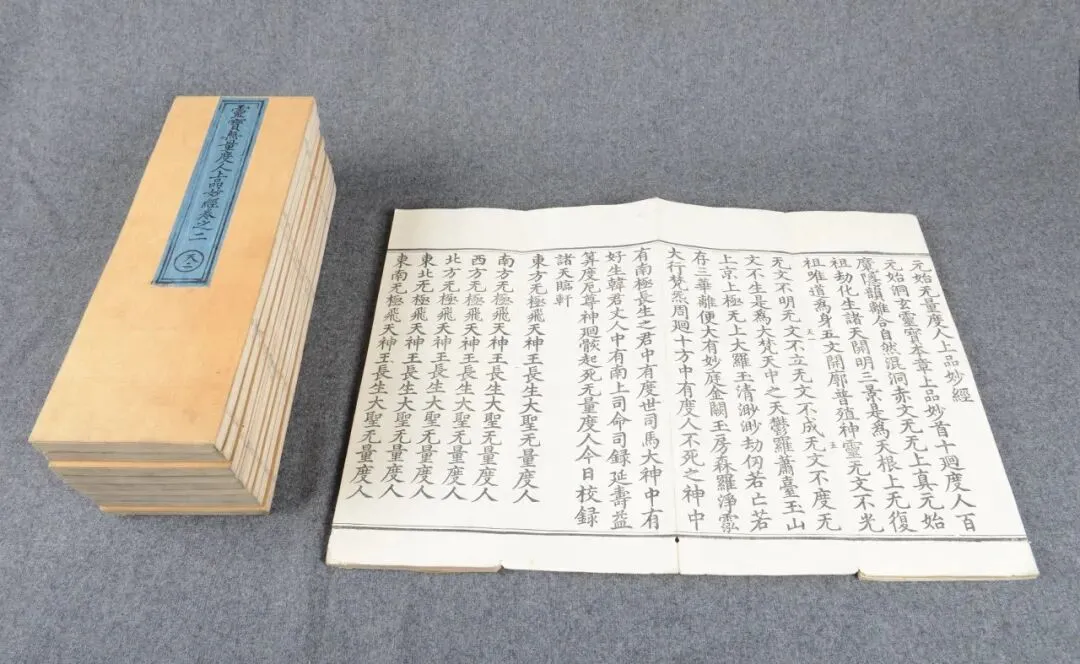 靈寶無量度人上品妙經卷之二
天二
元始无量度人上品妙經
元始洞玄靈寶本章上品妙首十廻度人百
魔隱韻離合自然混洞赤文无无上真元始
祖劫化生諸天開明三景是爲天根上无復
祖唯道爲身五文開廓普殖神靈无文不光
无文不明无文不立无文不成无文不度无
文不生是爲大梵天中之天鬱羅蕭臺玉山
上京上極无上大羅玉清渺渺劫仞若亡若
存三華離便大有妙庭金闕玉房森羅淨霐
大行梵炁周廻十方中有度人不死之神中
有南極長生之君中有度世司馬大神中有
好生韓君丈人中有南上司命司錄延壽益
算度厄尊神廻骸起死无量度人今日校錄
諸天臨軒
東方无極飛天神王長生大聖无量度人
南方无極飛天神王長生大聖无量度人
西方无極飛天神王長生大聖无量度人
北方无極飛天神王長生大聖无量度人
東北无極飛天神王長生大聖无量度人
東南无極飛天神王長生大聖无量度人